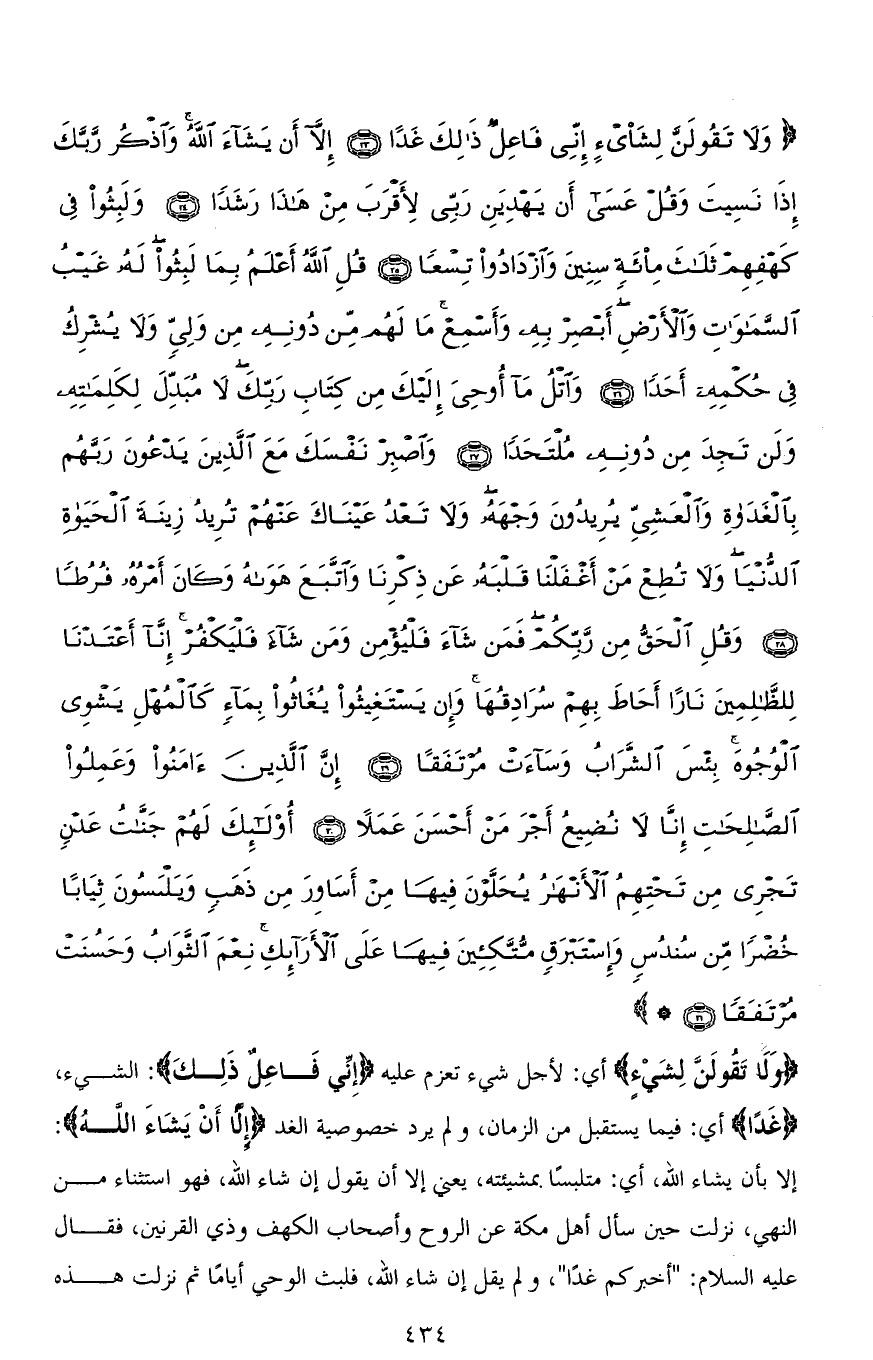 ﴿ وَلَا تَقُولَنَّ لِشَا۟ىْءٍ إِنِّى فَاعِلٌ ذَٰلِكَ غَدًا ٢٣ إِلَّآ أَن يَشَآءَ ٱللَّهُ ۚ وَٱذْكُر رَّبَّكَ
إِذَا نَسِيتَ وَقُلْ عَسَىٰٓ أَن يَهْدِيَنِ رَبِّى لِأَقْرَبَ مِنْ هَـٰذَا رَشَدًا ٢٤ وَلَبِثُوا۟ فِى
كَهْفِهِمْ ثَلَـٰثَ مِا۟ئَةٍ سِنِينَ وَٱزْدَادُوا۟ تِسْعًا ٢٥ قُلِ ٱللَّهُ أَعْلَمُ بِمَا لَبِثُوا۟ ۖ لَهُۥ غَيْبُ
ٱلسَّمَـٰوَٰتِ وَٱلْأَرْضِ ۖ أَبْصِرْ بِهِۦ وَأَسْمِعْ ۚ مَا لَهُم مِّن دُونِهِۦ مِن وَلِىٍّ وَلَا يُشْرِكُ
فِى حُكْمِهِۦٓ أَحَدًا ٢٦ وَٱتْلُ مَآ أُوحِىَ إِلَيْكَ مِن كِتَابِ رَبِّكَ ۖ لَا مُبَدِّلَ لِكَلِمَـٰتِهِۦ
وَلَن تَجِدَ مِن دُونِهِۦ مُلْتَحَدًا ٢٧ وَٱصْبِرْ نَفْسَكَ مَعَ ٱلَّذِينَ يَدْعُونَ رَبَّهُم
بِٱلْغَدَوٰةِ وَٱلْعَشِىِّ يُرِيدُونَ وَجْهَهُۥ ۖ وَلَا تَعْدُ عَيْنَاكَ عَنْهُمْ تُرِيدُ زِينَةَ ٱلْحَيَوٰةِ
ٱلدُّنْيَا ۖ وَلَا تُطِعْ مَنْ أَغْفَلْنَا قَلْبَهُۥ عَن ذِكْرِنَا وَٱتَّبَعَ هَوَىٰهُ وَكَانَ أَمْرُهُۥ فُرُطًا
٢٨ وَقُلِ ٱلْحَقُّ مِن رَّبِّكُمْ ۖ فَمَن شَآءَ فَلْيُؤْمِن وَمَن شَآءَ فَلْيَكْفُرْ ۚ إِنَّآ أَعْتَدْنَا
لِلظَّـٰلِمِينَ نَارًا أَحَاطَ بِهِمْ سُرَادِقُهَا ۚ وَإِن يَسْتَغِيثُوا۟ يُغَاثُوا۟ بِمَآءٍ كَٱلْمُهْلِ يَشْوِى
ٱلْوُجُوهَ ۚ بِئْسَ ٱلشَّرَابُ وَسَآءَتْ مُرْتَفَقًا ٢٩ إِنَّ ٱلَّذِينَ ءَامَنُوا۟ وَعَمِلُوا۟
ٱلصَّـٰلِحَـٰتِ إِنَّا لَا نُضِيعُ أَجْرَ مَنْ أَحْسَنَ عَمَلًا ٣٠ أُو۟لَـٰٓئِكَ لَهُمْ جَنَّـٰتُ عَدْنٍ
تَجْرِى مِن تَحْتِهِمُ ٱلْأَنْهَـٰرُ يُحَلَّوْنَ فِيهَا مِنْ أَسَاوِرَ مِن ذَهَبٍ وَيَلْبَسُونَ ثِيَابًا
خُضْرًا مِّن سُندُسٍ وَإِسْتَبْرَقٍ مُّتَّكِـِٔينَ فِيهَا عَلَى ٱلْأَرَآئِكِ ۚ نِعْمَ ٱلثَّوَابُ وَحَسُنَتْ
مُرْتَفَقًا ٣١ * ﴾
﴿وَلَا تَقُولَنَّ لِشَيْءٍ﴾ أي: لأجل شيء تعزم عليه ﴿إِنِّي فَاعِلٌ ذَلِكَ﴾: الشيء،
﴿غَدًا﴾ أي: فيما يستقبل من الزمان، و لم يرد خصوصية الغد ﴿إِلَّا أَنْ يَشَاءَ اللَّهُ﴾:
إلا بأن يشاء الله، أي: متلبسًا بمشيئته، يعني إلا أن يقول إن شاء الله، فهو استثناء من
النهي، نزلت حين سأل أهل مكة عن الروح وأصحاب الكهف وذي القرنين، فقال
عليه السلام: "أخبركم غدًا"، و لم يقل إن شاء الله، فلبث الوحي أيامًا ثم نزلت هذه
٤٣٤